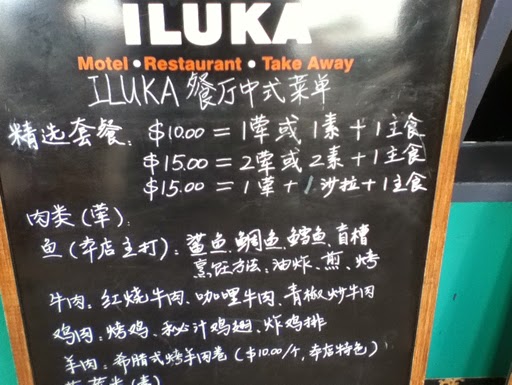 ILUKA
Motel • Restaurant • Take Away
ILUKA 餐厅中式菜单
精选套餐: $10.00 = 1荤或 1素 + 1主食
$15.00 = 2荤或 2素 + 1主食
$15.00 = 1荤 + 1沙拉 + 1主食
肉类(荤):
鱼(本店主打): 鲨鱼、鲷鱼、鳕鱼、盲槽
烹饪方法: 油炸、煎、烤
牛肉: 红烧牛肉、咖哩牛肉、青椒炒牛肉
鸡肉: 烤鸡、秘汁鸡翅、炸鸡排
羊肉: 希腊式烤羊肉卷($10.00/个, 本店特色)